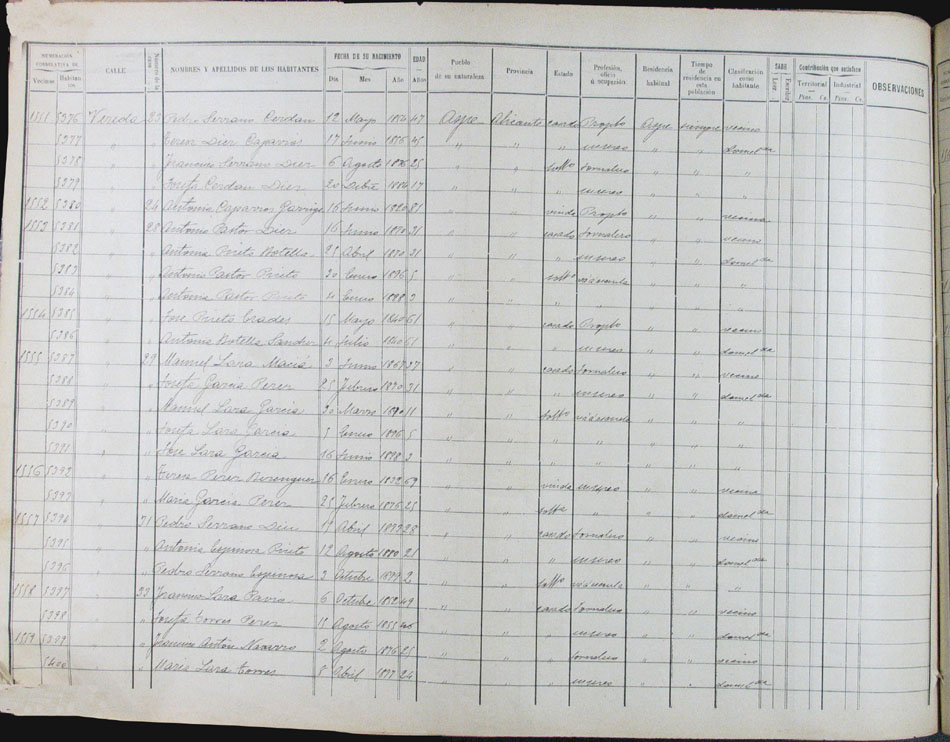 NUMERACIÓN CORRELATIVA DE
Vecinos
Habitantes
CALLE
NOMBRES Y APELLIDOS DE LOS HABITANTES
FECHA DE SU NACIMIENTO
Día Mes Año
EDAD
Años
Pueblo de su naturaleza
Provincia
Estado
Profesión, oficio ú ocupación
Residencia habitual
Tiempo de residencia en esta población
Clasificación como habitante
SABE
Leer Escribir
Contribución que satisface
Territorial
Ptas. Cs.
Industrial
Ptas. Cs.
OBSERVACIONES
1551 5376 Vereda 23 Serrano Cerdan 12 Mayo 1854 47 Aspe Alicante casado Propto Aspe siempre vecino
5377 " " Teresa Dier Caparros 17 Junio 1856 45 " " " sus seres " " domcda
5378 " " Francisco Serrano Dier 6 Agosto 1876 25 " " solto Jornalero " " "
5379 " " Josefa Cerdan Dier 20 1884 17 " " " sus seres " "
1552 5380 " 24 Antonia Caparros 16 Junio 1820 81 " viuda Propto " " vecina
1553 5381 " 25 Antonio Pastor Dier 16 Junio 1870 31 " " casado Jornalero " " vecino
5382 " " Antonia Prieto Botella 25 Abril 1870 31 " " " sus seres " " domcda
5383 " " Antonio Pastor Prieto 20 Enero 1896 5 " " solto vá escuela " " "
5384 " " Antonia Pastor Prieto 4 Enero 1898 3 " "
1554 5385 " " Jose Prieto 15 Mayo 1840 61 " " casado Propto " " vecino
5386 " " Antonia Botella Sanchez 4 Julio 1840 61 " " " sus seres " " domcda
1555 5387 " 29 Manuel Lara Maciá 3 Junio 37 " " casado Jornalero " " vecino
5388 " " Josefa Garcia Perez 25 Febrero 1870 31 " " " sus seres " " domcda
5389 " " Manuel Lara Garcia 20 Marzo 1890 11 " " solto vá escuela " "
5390 " " Josefa Lara Garcia 5 Enero 1896 5 " " " " " " "
5391 " " Jose Lara Garcia 16 Junio 1898 3 " " " " " " "
1556 5392 " " Teresa Perez Berenguer 16 Enero 1832 69 " " viuda sus seres " " vecina
5393 " " Maria Garcia Perez 25 Febrero 1876 25 " " solta " " " domcda
1557 5394 " 31 Pedro Serrano Dier 17 Abril 1873 28 " " casado Jornalero " " vecino
5395 " " Antonia Espinosa Prieto 12 Agosto 1880 21 " " " sus seres " " domcda
5396 " " Pedro Serrano Espinosa 3 Octubre 1899 2 " " solto vá escuela " " "
1558 5397 " 33 Francisco Lara Pavia 6 Octubre 1852 49 " " casado Jornalero " " vecino
5398 " " Josefa Torres Perez 15 Agosto 1855 46 " " " sus seres " " domcda
1559 5399 " " Francisco Antón Navarro 2 Agosto 1876 25 " " " Jornalero " " vecino
5400 " Maria Lara Torres 8 Abril 1877 24 " " " sus seres " " domcda